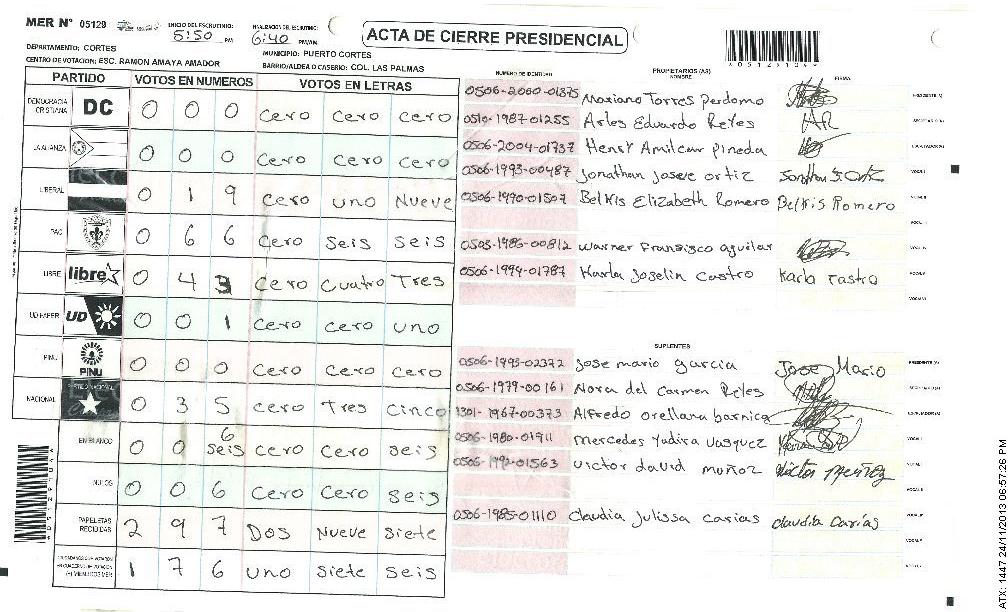 MER N° 05129
INICIO DEL ESCRUTINIO: 5:50 PM
FINALIZACION DEL ESCRUTINIO: 6:40 PM/AM
ACTA DE CIERRE PRESIDENCIAL
DEPARTAMENTO: CORTES
MUNICIPIO: PUERTO CORTES
CENTRO DE VOTACION: ESC. RAMON AMAYA AMADOR
BARRIO/ALDEA O CASERIO: COL. LAS PALMAS
PARTIDO VOTOS EN NUMEROS VOTOS EN LETRAS
DEMOCRACIA CRISTIANA DC 0 0 0 cero cero cero
LA ALIANZA 0 0 0 cero cero cero
LIBERAL 0 1 9 cero uno Nueve
PAC 0 6 6 cero seis seis
LIBRE libre 0 4 3 cero cuatro Tres
UD FAPER UD 0 0 1 cero cero uno
PINU PINU 0 0 0 cero cero cero
NACIONAL PARTIDO NACIONAL 0 3 5 cero Tres cinco
EN BLANCO 0 0 6 seis cero cero seis
NULOS 0 0 6 cero cero seis
PAPELETAS RECIBIDAS 2 9 7 DOS Nueve siete
1 7 6 uno siete seis
NUMERO DE IDENTIDAD PROPIETARIOS (AS) NOMBRE FIRMA
0506-2000-01375 Mariano Torres Perdomo
0510-1987-01255 Arles Eduardo Reyes
0506-2004-01737 Henry Amilcar Pineda
0506-1993-00487 Jonathan Josue ortiz
0506-1990-01507 Belkis Elizabeth Romero Belkis Romero
0505-1986-00812 Warner Fransisco aguilar
0506-1994-01787 Karla Joselin Castro Karla Castro
SUPLENTES
0506-1995-02372 Jose mario garcia Jose Mario
0506-1979-00161 Nora del Carmen Reyes
1301-1967-00373 Alfredo orellana barnica
0506-1980-01911 Mercedes Yadira Vasquez
0506-1992-01563 victor david muñoz Victor Muñoz
0506-1985-01110 Claudia Julissa Carias Claudia Carías
ATX: 1447 24/11/2013 06:57:26 PM